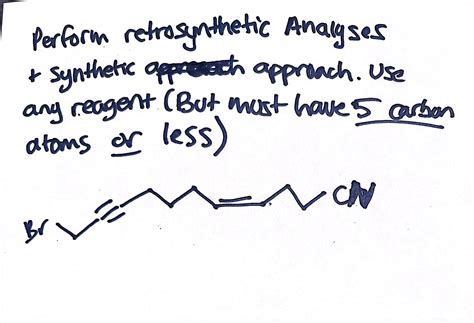 Perform retrosynthetic Analyses
+ synthetic approach approach. Use
any reagent (But must have 5 carbon
atoms or less)
CN
Br